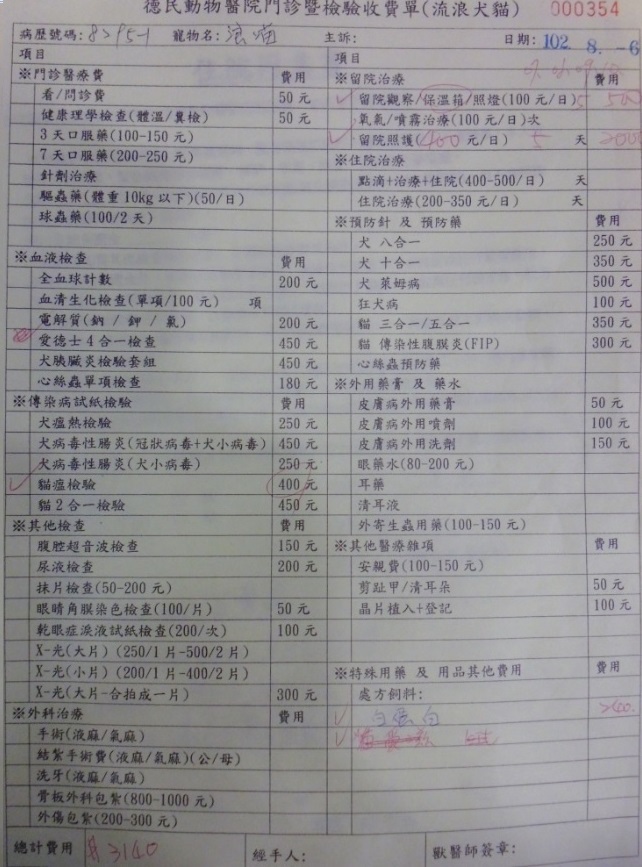 德民動物醫院門診暨檢驗收費單(流浪犬貓) 000354
病歷號碼: 寵物名:浪喵 主訴: 日期:102. 8. -6
項目
※門診醫療費 費用
看/問診費 50元
健康理學檢查(體溫/糞檢) 50元
3天口服藥(100-150元)
7天口服藥(200-250元)
針劑治療
驅蟲藥(體重10kg以下)(50/日)
球蟲藥(100/2天)
※血液檢查 費用
全血球計數 200元
血清生化檢查(單項/100元) 項
電解質(鈉 / 鉀 / 氯) 200元
愛德士4合一檢查 450元
犬胰臟炎檢驗套組 450元
心絲蟲單項檢查 180元
※傳染病試紙檢驗 費用
犬瘟熱檢驗 250元
犬病毒性腸炎(冠狀病毒+犬小病毒) 450元
犬病毒性腸炎(犬小病毒) 250元
貓瘟檢驗 400元
貓2合一檢驗 450元
※其他檢查 費用
腹腔超音波檢查 150元
尿液檢查 200元
抹片檢查(50-200元)
眼睛角膜染色檢查(100/片) 50元
乾眼症淚液試紙檢查(200/次) 100元
X-光(大片)(250/1片-500/2片)
X-光(小片)(200/1片-400/2片)
X-光(大片-合拍成一片) 300元
※外科治療 費用
手術(液麻/氣麻)
結紮手術費(液麻/氣麻)(公/母)
洗牙(液麻/氣麻)
骨板外科包紮(800-1000元)
外傷包紮(200-300元)
項目
※留院治療 費用
留院觀察/保溫箱/照燈(100元/日) 5 500
氧氣/噴霧治療(100元/日)次
留院照護(400元/日) 5 天 2000
※住院治療
點滴+治療+住院(400-500/日) 天
住院治療(200-350元/日) 天
※預防針 及 預防藥 費用
犬 八合一 250元
犬 十合一 350元
犬 萊姆病 500元
狂犬病 100元
貓 三合一/五合一 350元
貓 傳染性腹膜炎(FIP) 300元
心絲蟲預防藥
※外用藥膏 及 藥水
皮膚病外用藥膏 50元
皮膚病外用噴劑 100元
皮膚病外用洗劑 150元
眼藥水(80-200元)
耳藥
清耳液
外寄生蟲用藥(100-150元)
※其他醫療雜項 費用
安親費(100-150元)
剪趾甲/清耳朵 50元
晶片植入+登記 100元
※特殊用藥 及 用品其他費用 費用
處方飼料:
白蛋白 240.
總計費用 $3140 經手人: 獸醫師簽章: